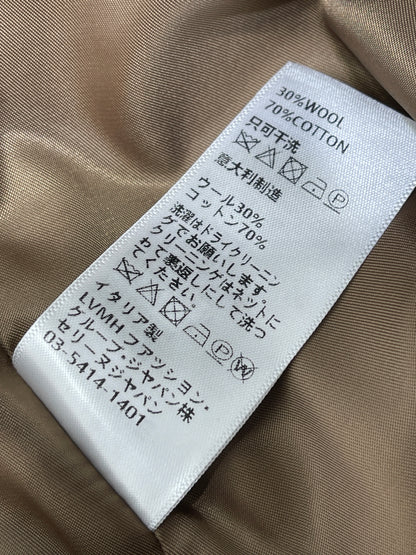 30%WOOL
70%COTTON
只可干洗
意大利制造
ウール30%
コットン70%
洗濯はドライクリーニン
グでお願いします
クリーニングはネットに
わて裏返しにして洗っ
てください。
イタリア製
LVMH ファッション・
グループ・ジャパン株
セリーヌジャパン
03-5414-1401